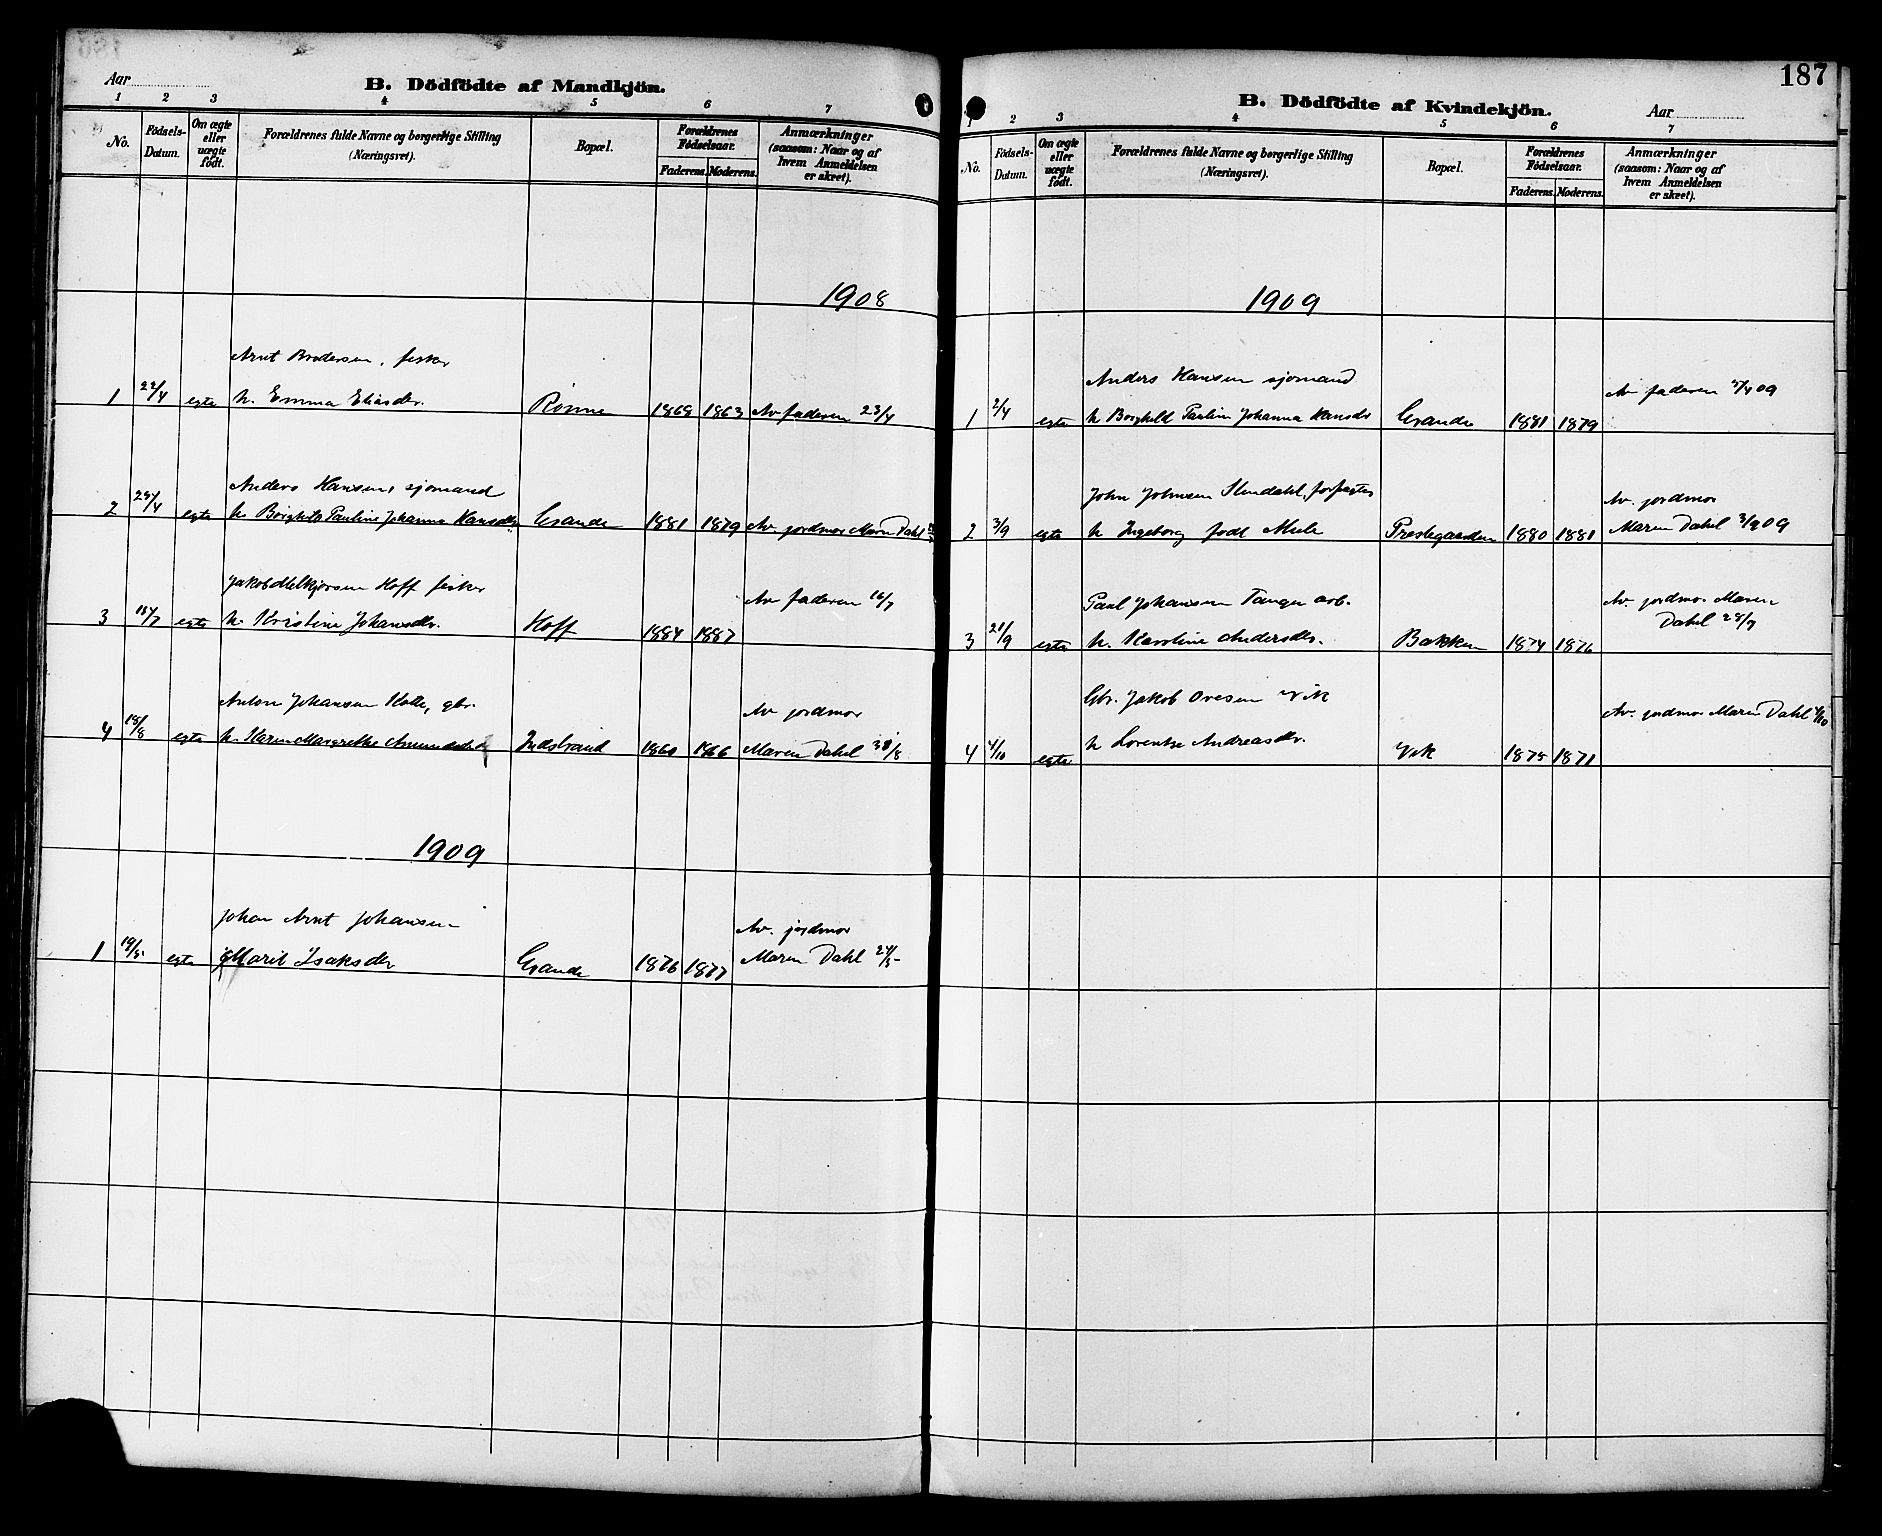 Aar
B. Dödfödte af Mandkjön.
1 2 3 4 5 6 7
No.
Födsels-Datum.
Om ægte eller uægte födt.
Forældrenes fulde Navne og borgerlige Stilling
(Næringsvei).
Bopæl.
Forældrenes Födselsaar.
Faderens. Moderens.
Anmærkninger
(saasom: Naar og af
hvem Anmeldelsen
er skeet).
1908
Arnt Brodersen, fisker
1 22/4 egte h. Emma Eliasdr. Rönne 1868 1863 Av faderen 23/4
Anders Hansen, sjømand
2 29/4 egte h. Borghild Pauline Johanna Hansdr. Grande 1881 1879 Av jordmor Maren Dahl
Jakob Melkjorsen Hoff fisker
Av faderen 16/7
3 15/7 egte h. Kristine Johansdr. Hoff 1884 1887
Anton Johansen gbr.
Av jordmor
4 18/8 egte h. Karen Margrethe Indstrand 1860 1866 Maren Dahl 30/8
1909
Johan Arnt Johansen
Av. jordmor
1 19/5 egte Marit Isaksdr Grande 1876 1877 Maren Dahl 24/5
187
B. Dödfödte af Kvindekjön.
Aar
1 2 3 4 5 6 7
No.
Födsels-Datum.
Om ægte eller uægte födt.
Forældrenes fulde Navne og borgerlige Stilling
(Næringsvei).
Bopæl.
Forældrenes Födselsaar.
Faderens. Moderens.
Anmærkninger
(saasom: Naar og af
hvem Anmeldelsen
er skeet).
1909
Anders Hansen sjømand
Av faderen 09
1 2/4 egte h Borghild Pauline Johanna Hansdr Grande 1881 1879
John Johnsen forpagter
Av. jordmor
2 3/9 egte h Ingeborg født Mule Prestegaarden 1880 1881 Maren Dahl 3/9 09
Paul Johansen Tanger arb.
Av. jordmor Maren
Dahl 28/9
3 21/9 egte h. Karoline Andersdr. Bakken 1874 1876
Gbr. Jakob Ovesen Vik
Av. jordmor Maren Dahl
4 4/10 egte h Lorentse Andreasdr. Vik 1875 1871